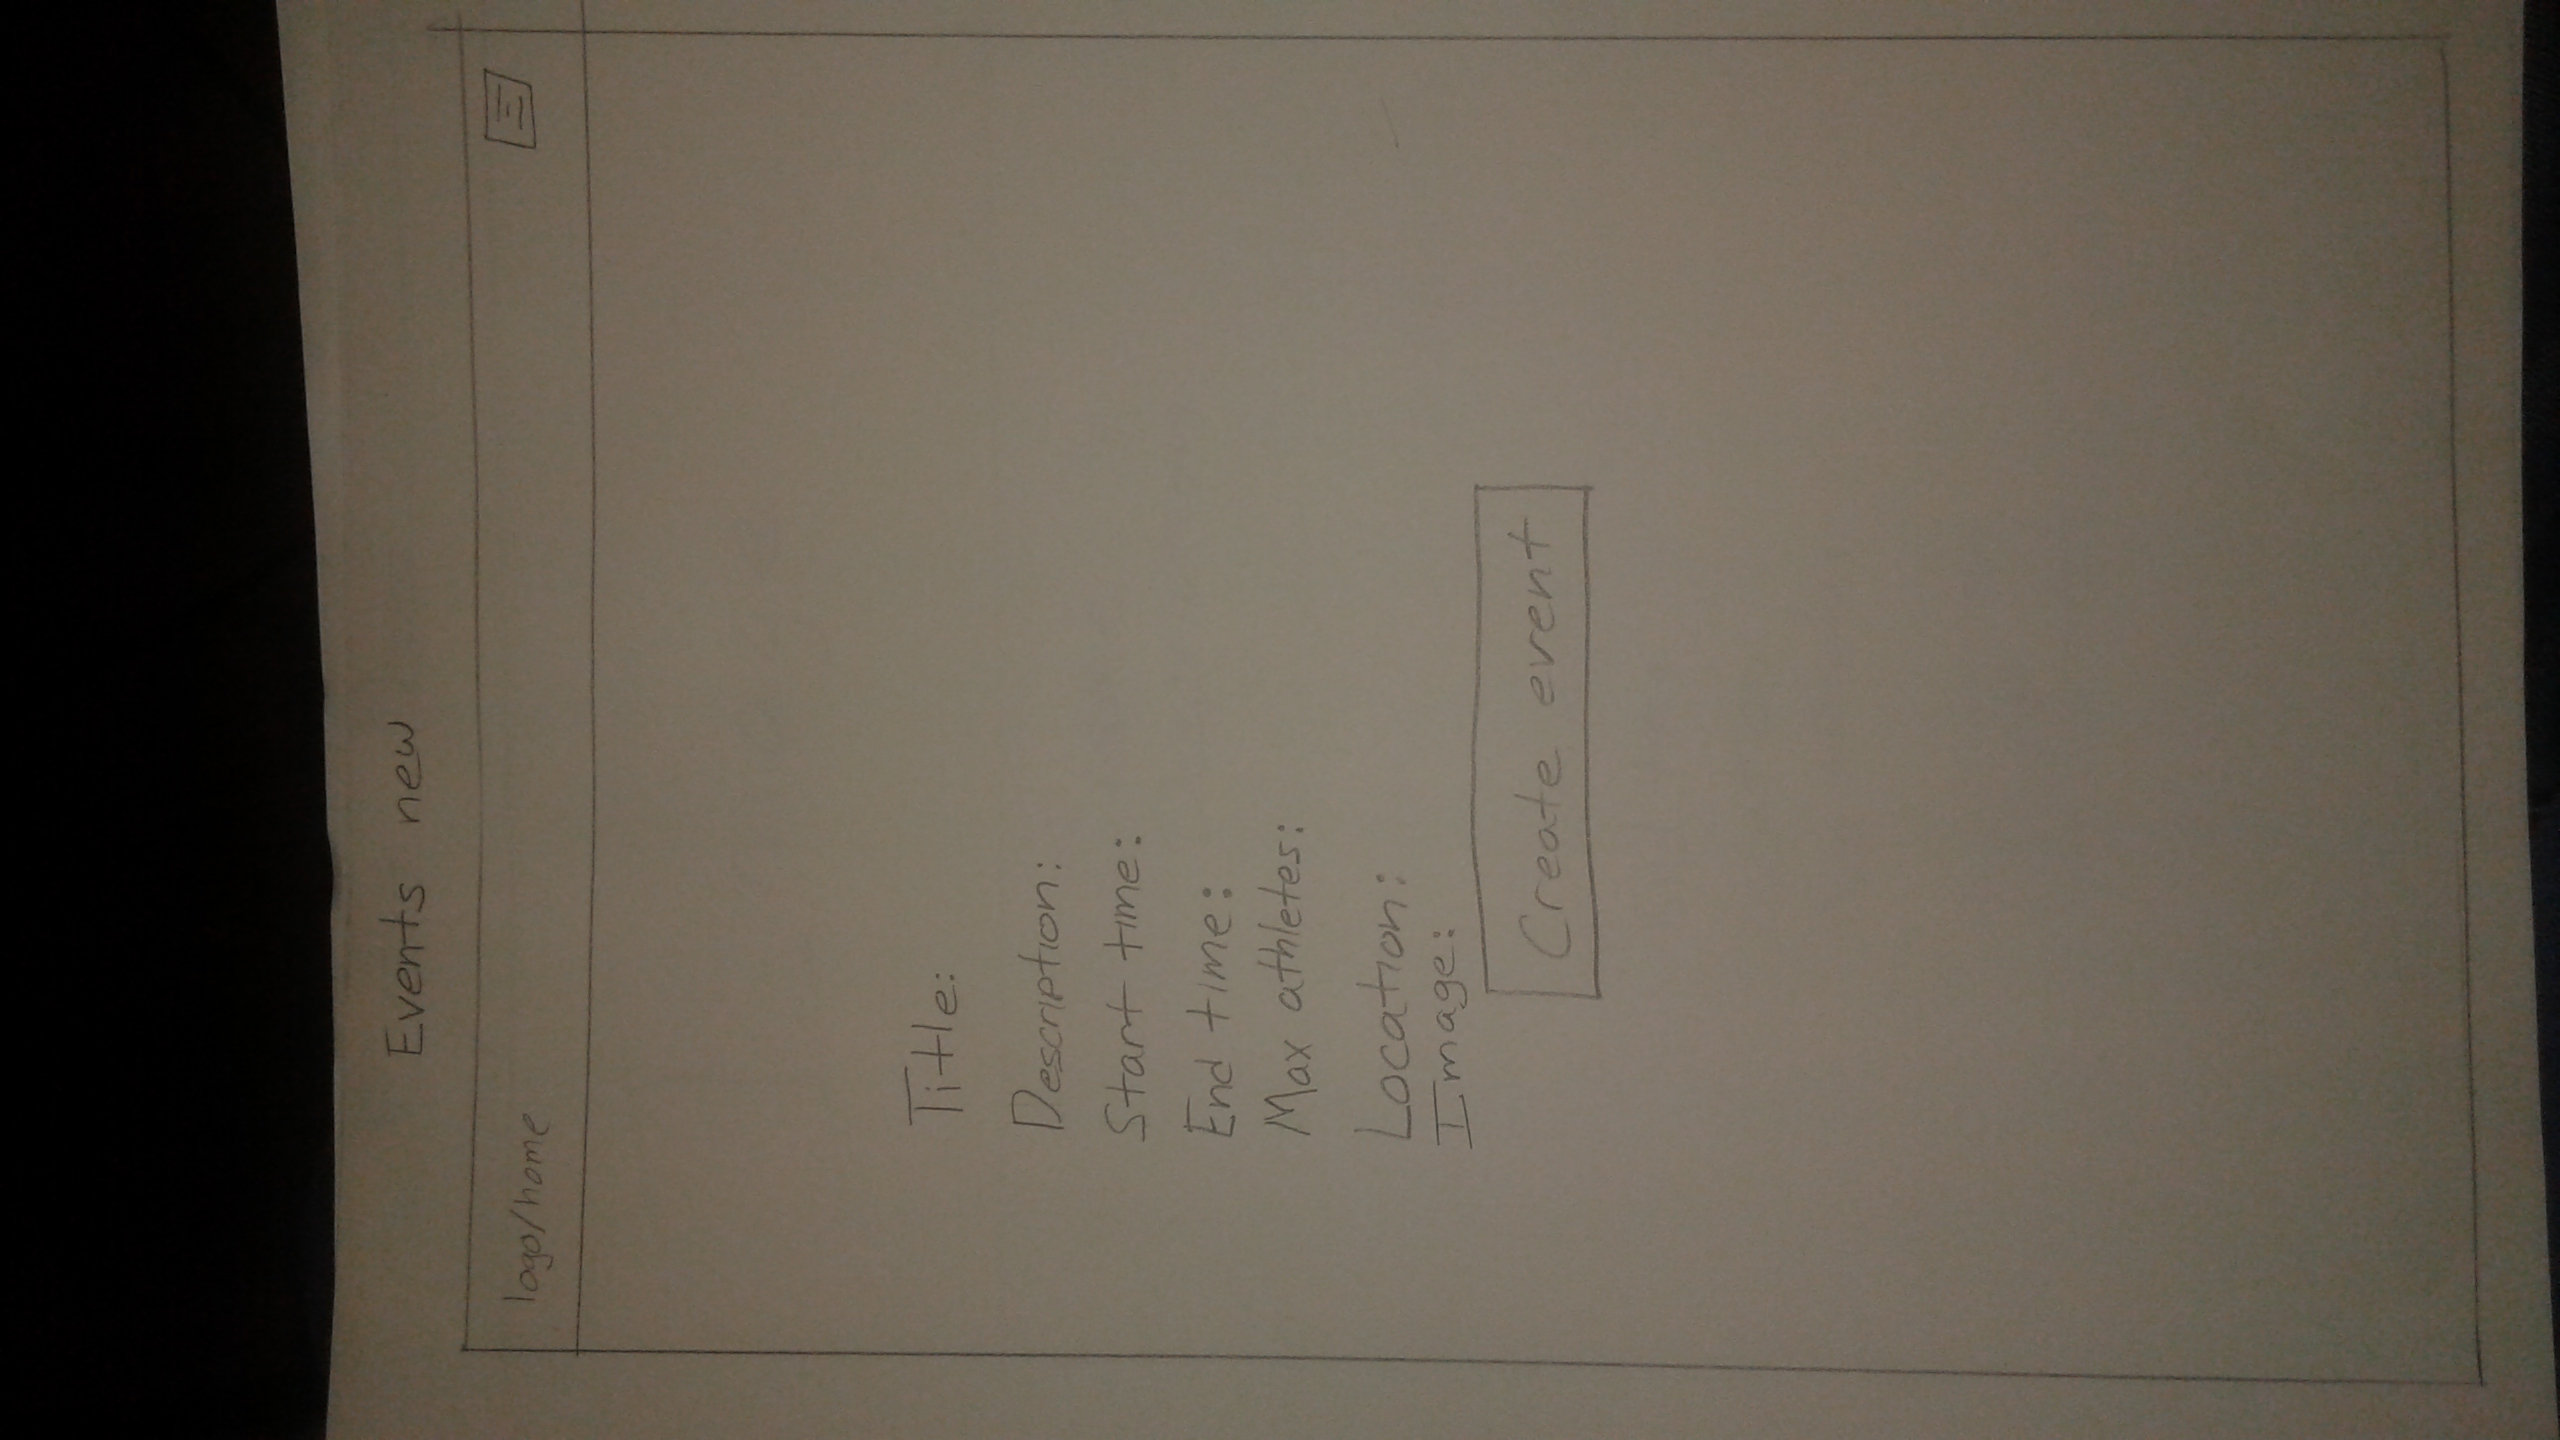 Events new
logo/home
Title:
Description:
Start time:
End time:
Max athletes:
Location:
Image:
Create event